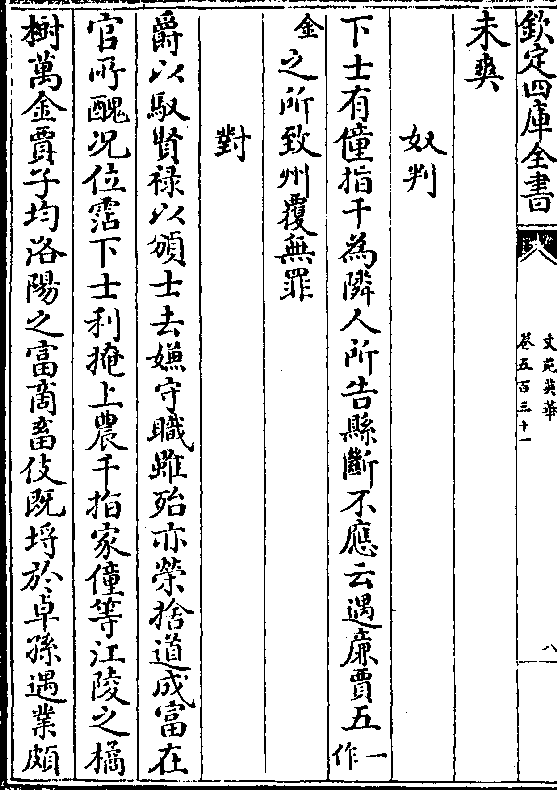 欽定四庫全書
文苑英華
卷五百三十一
八
未爽
奴判
下士有僮指千為隣人所告縣斷不應云遇廉賈五一作
金之所致州覆無罪
對
爵以馭賢禄以頒士去嫌守職雖殆亦榮捨道成富在
官所醜况位霑下士利掩上農千指家僮等江陵之橘
樹萬金賈子均洛陽之富啇畜伎既埒於卓孫遇業頗